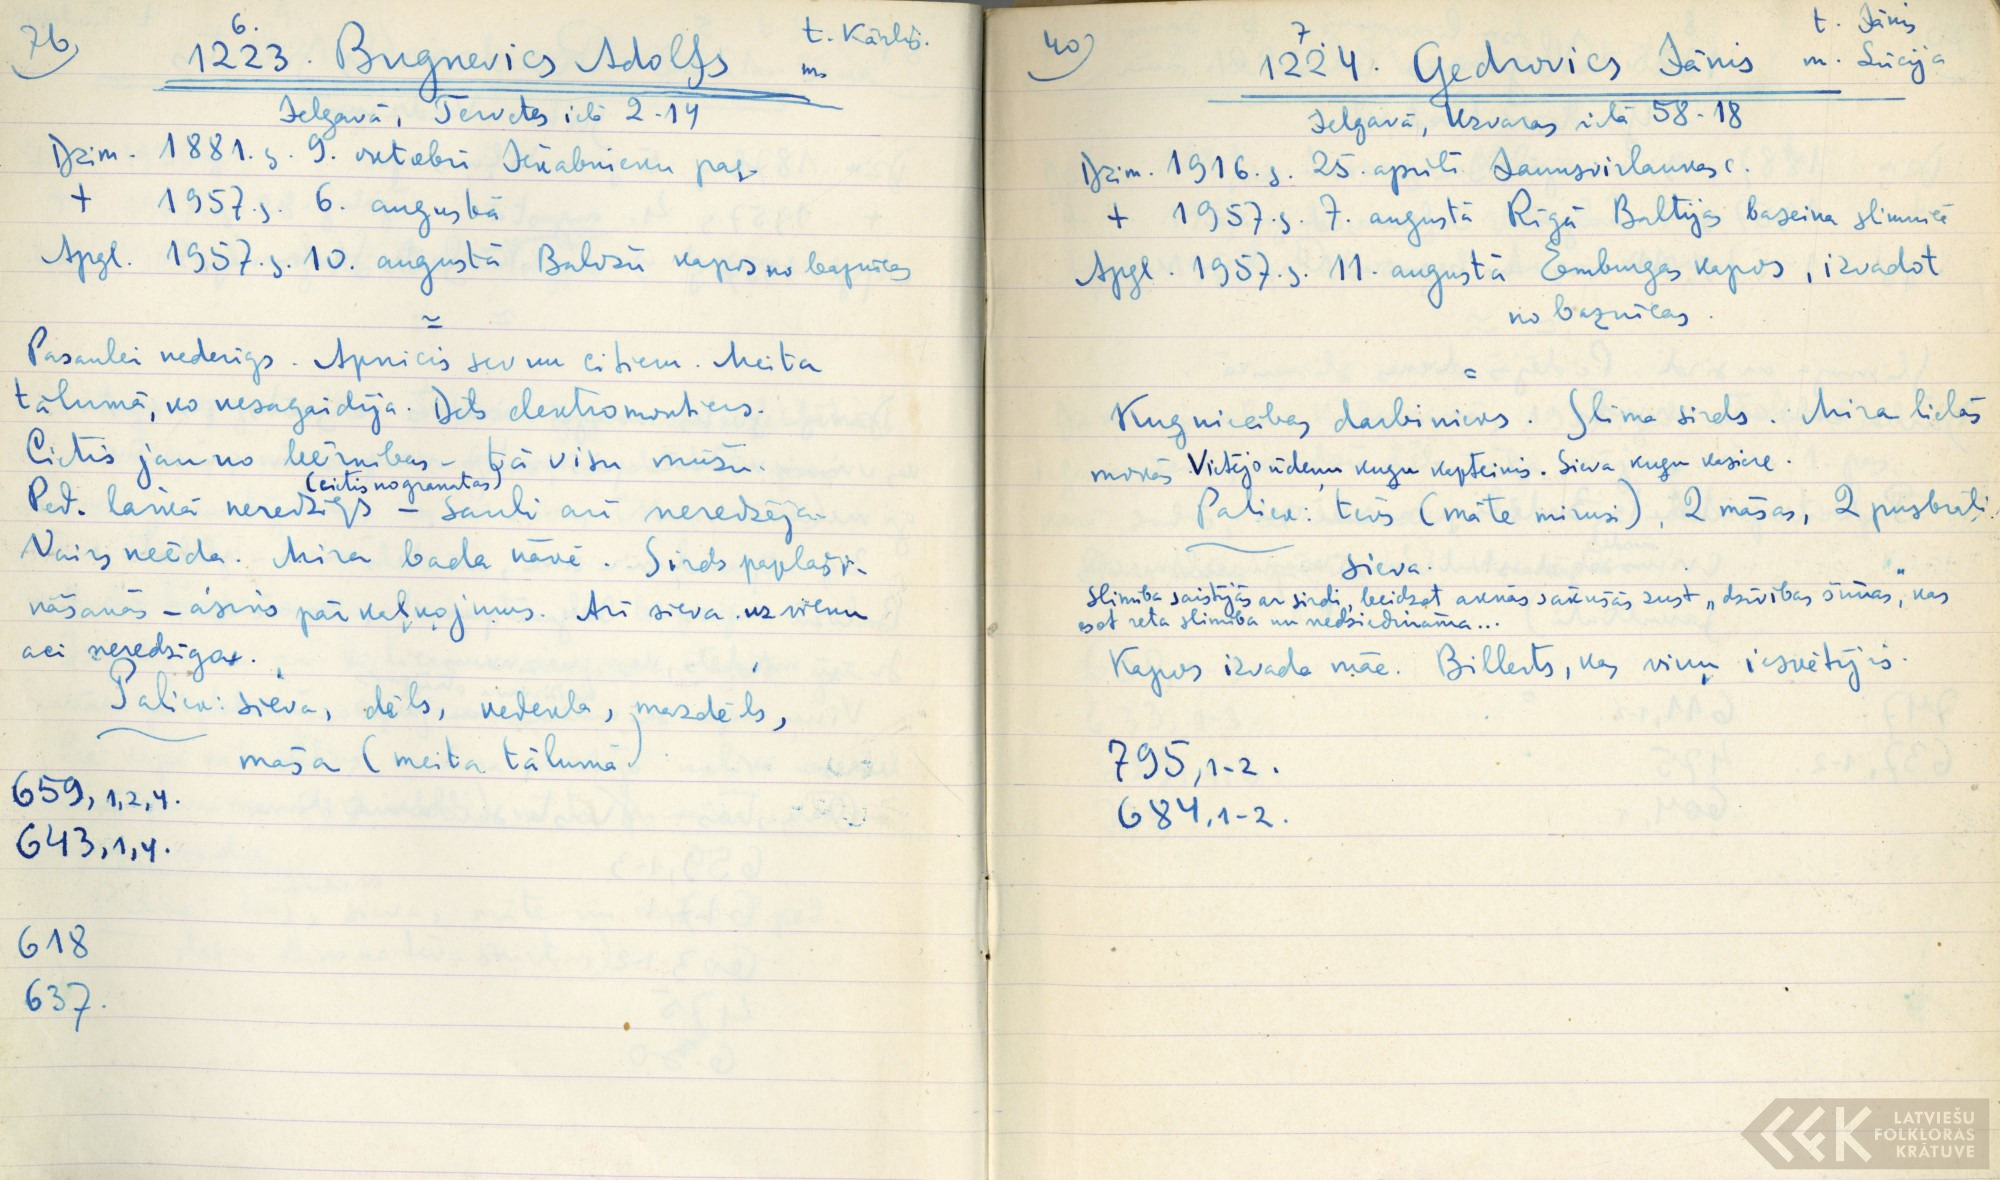 76
6.
1223. Bugnevics Adolfs
t. Kārlis.
m.
Jelgavā, Tervetes ielā 2-14
Dzim. 1881.g. 9. oktobrī Jēkabnieku pag.
+ 1957.g. 6. augustā
Apgl. 1957.g. 10. augustā Baložu kapos no kapličas
=
Pasaulei nederīgs. Apnicis sev un citiem. Meita
tālumā, ko nesagaidīja. Dēls elektromontieris.
Cietis jau no bērnības – tā visu mūžu.
(cietis no granātas)
Pēd. laikā neredzīgs – Sauli arī neredzēja.
Vairs neēda. Mira bada nāvē. Sirds paplaši-
nāšanās – asins pārkaļķojums. Arī sieva uz vienu
aci neredzīga.
Paliek: sieva, dēls, vedekla, mazdēls,
māsa (meita tālumā)
659, 1,2,4.
643, 1,4.
618
637.
40
7
1224. Gedrovics Jānis
t. Jānis
m. Lūcija
Jelgavā, Uzvaras ielā 58-18
Dzim. 1916.g. 25. aprīlī Jaunsvirlaukas c.
+ 1957.g. 7. augustā Rīgā Baltijas baseina slimnīcā
Apgl. 1957.g. 11. augustā Emburgas kapos, izvadot
no baznīcas.
=
Kuģniecības darbinieks. Slima sirds. Mira lielās
mokās Vietējo ūdeņu kuģu kapteinis. Sieva kuģu kasiere.
Paliek: tēvs (māte mirusi), 2 māsas, 2 pusbrāļi,
sieva.
Slimība saistījās ar sirdi, beidzot aknās sākušās zust „dzīvības šūnas", kas
esot reta slimība un nedziedināma...
Kapos izvada māc. Billerts, kas viņu iesvētījis.
795, 1-2.
684, 1-2.
LATVIEŠU
FOLKLORAS
KRĀTUVE